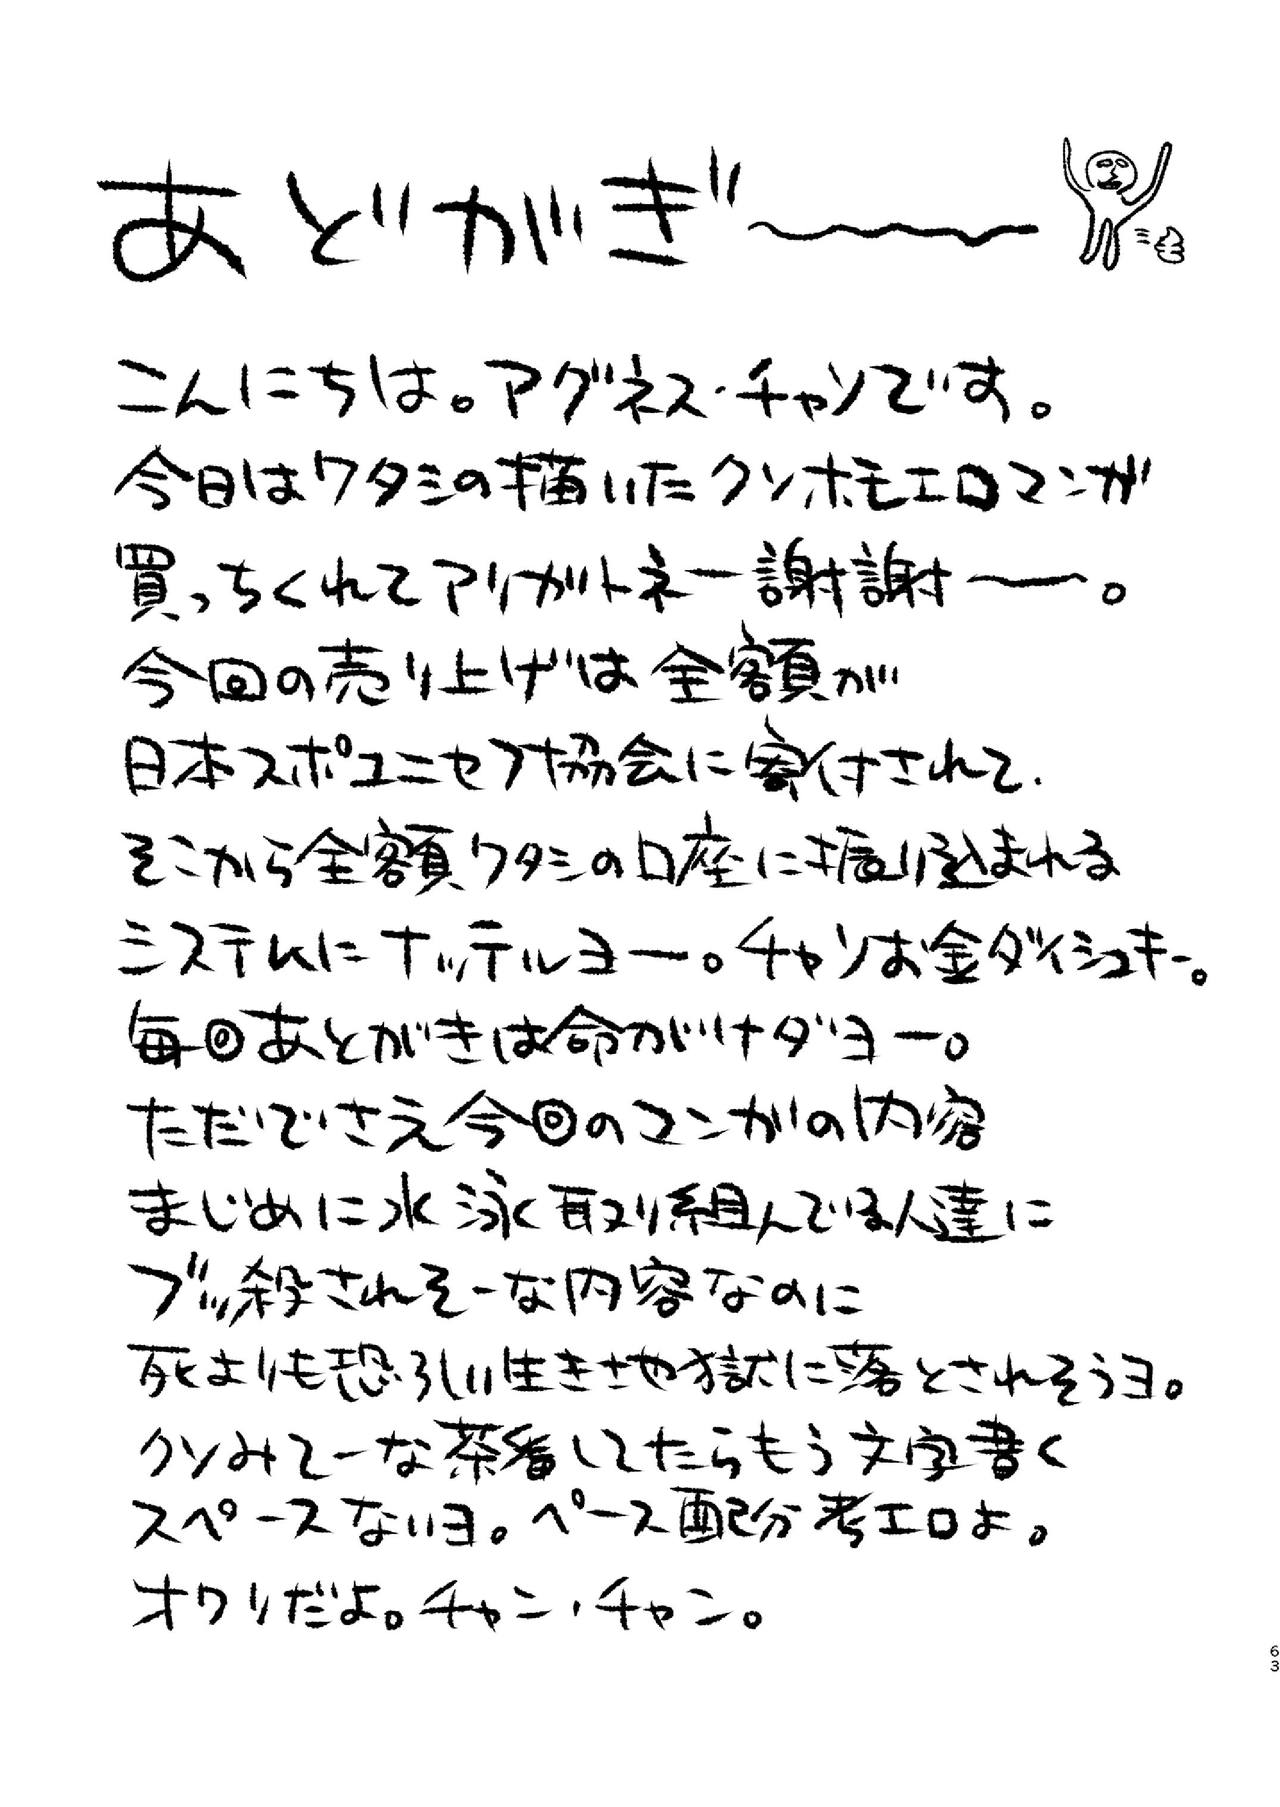 あどがぎ〜〜〜
こんにちは。アグネス・チャンです。
今日はワタシの描いたクソホモエロマンガ
買っちくれてアリガトネー謝謝〜。
今回の売り上げは全額が
日本スポユニセフ協会に寄付されて、
そこから全額ワタシの口座に振り込まれる
システムにナッテルヨー。チャンお金ダイシュキー。
毎回あとがきは命がけダヨー。
ただでさえ今回のマンガの内容
まじめに水泳取り組んでいる人達に
ブッ殺されそーな内容なのに
死よりも恐ろしい生きさせ獄に落とされそうヨ。
クソみてーな茶番してたらもう文字書く
スペースないヨ。ペース配分考エロよ。
オワリだよ。チャン・チャン。
63